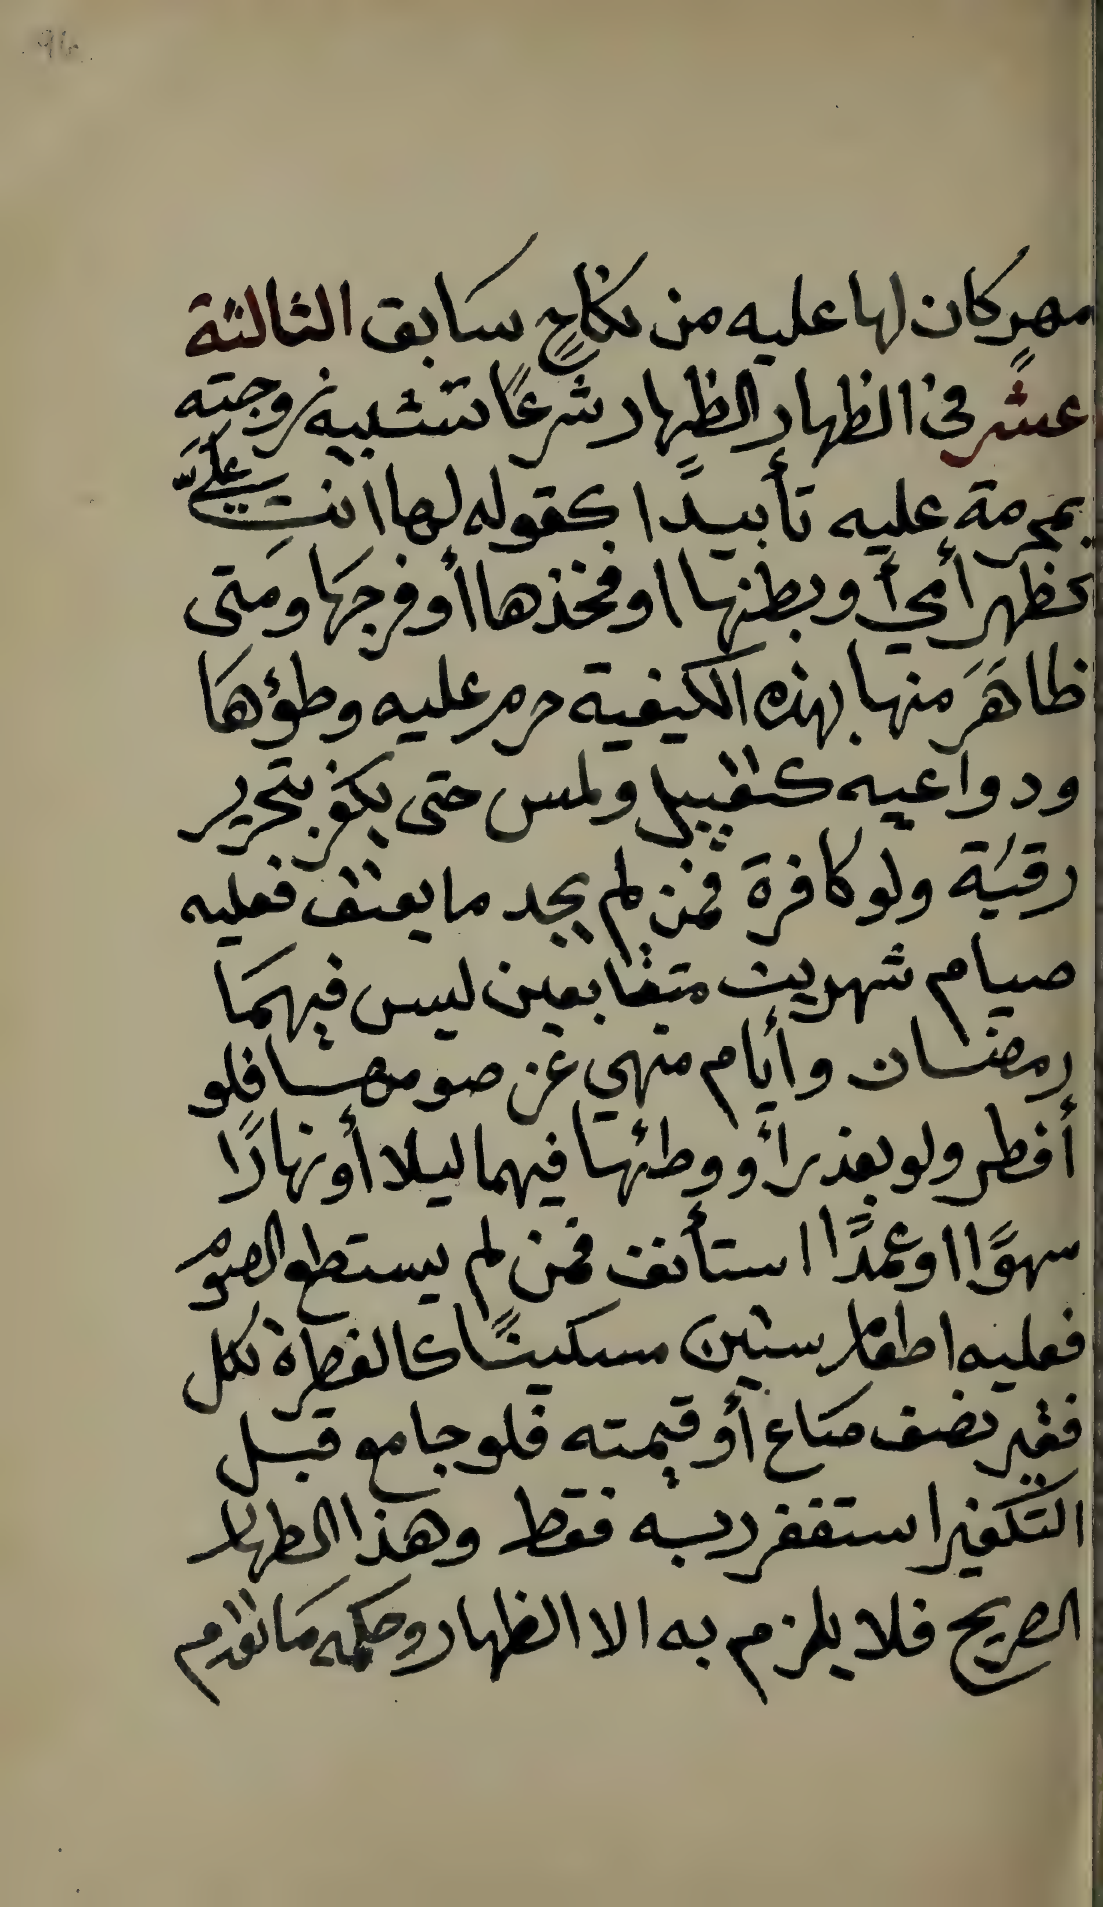 مهرٍ كان لها عليه من نكاحٍ سابق الثالثة
عشر في الظهار الظهار شرعًا تشبيه زوجته
بمحرمة عليه تأبيدًا كقوله لها انتِ عليَّ
كظهر أمي أو بطنها او فخذها أو فرجها ومتى
ظاهَرَ منها بهذه الكيفية حرم عليه وطؤها
ودواعيه كتقبيل ولمس حتى يكفر بتحرير
رقبة ولو كافرة فمن لم يجد ما يعتق فعليه
صيام شهرين متتابعين ليس فيهما
رمضان وأيام منهي عن صومها فلو
أفطر ولو بعذر أو وطئها فيهما ليلا أو نهارًا
سهوًا او عمدًا استأنف فمن لم يستطع الصوم
فعليه اطعام ستين مسكينًا كالفطرة لكل
فقير نصف صاع أو قيمته فلو جامع قبل
التكفير استغفر ربه فقط وهذا الظهار
الصريح فلا يلزم به الا الظهار وحكمه ما تقدم